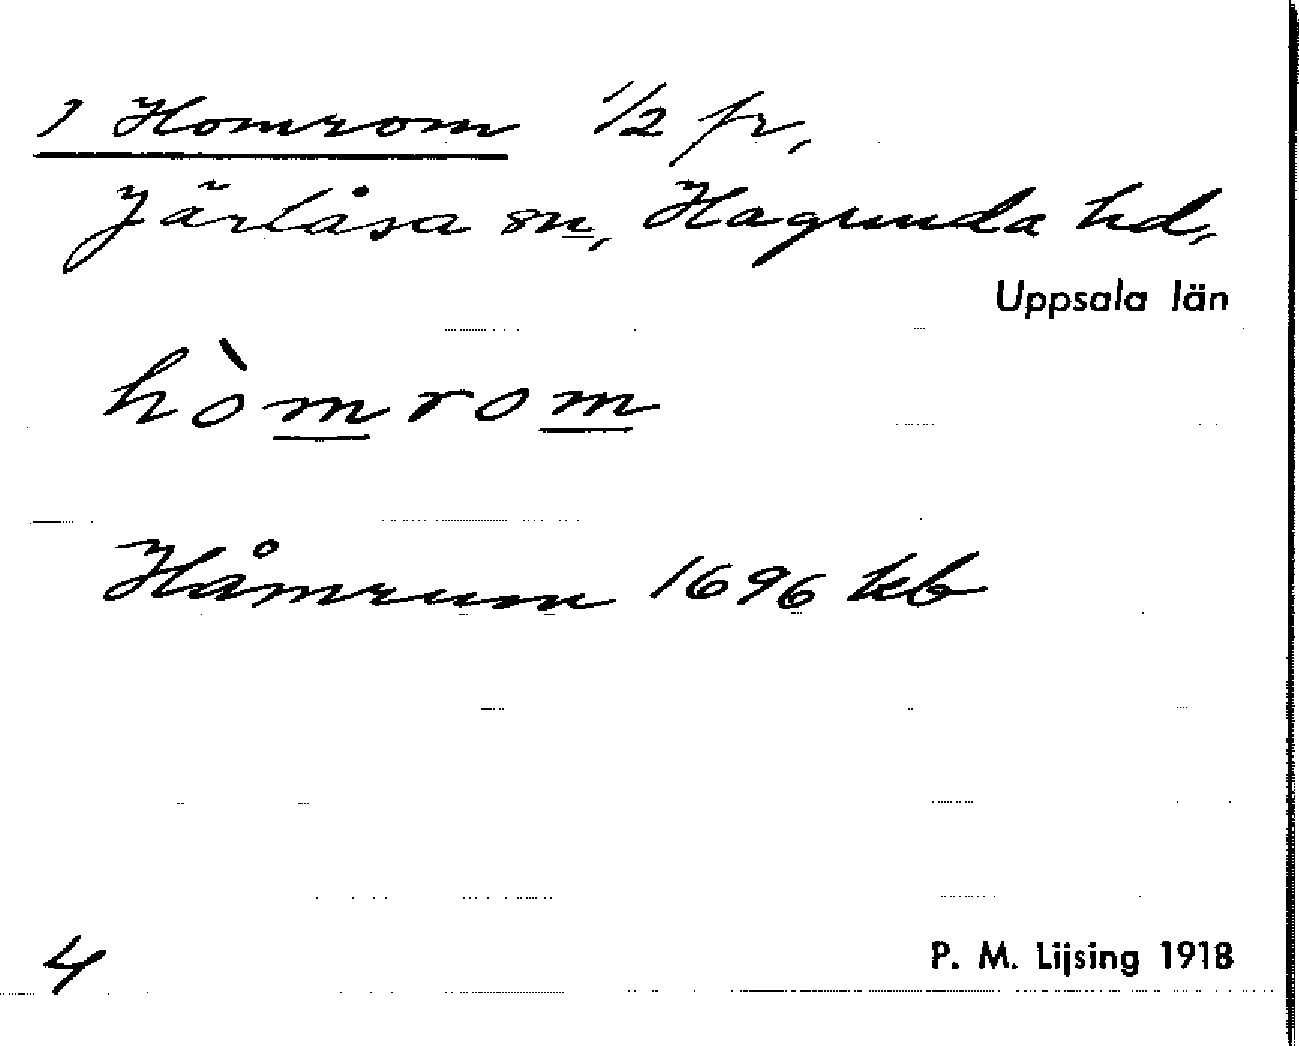 1 Homrom 1/2 fr,
Järlåsa sn, Hagunda hd,
Uppsala län
hòmrom
Håmrum 1696 kb
4
P. M. Lijsing 1918